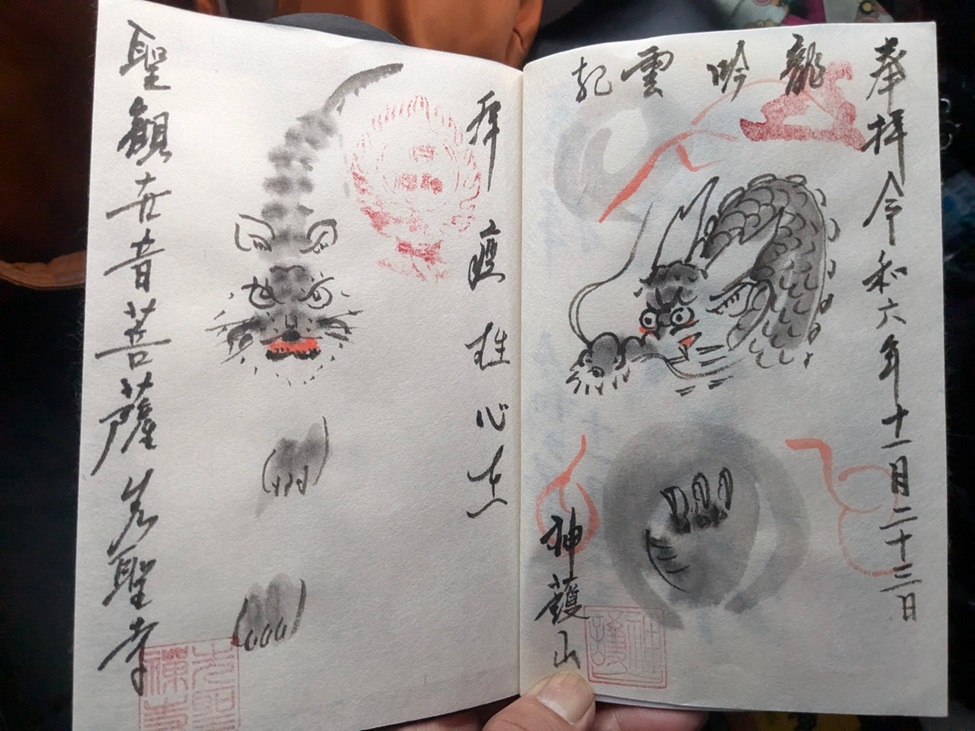 奉拝 令和六年十一月二十三日
龍吟雲起
神護山
神護
聖観世音菩薩 先聖寺
先聖禅寺